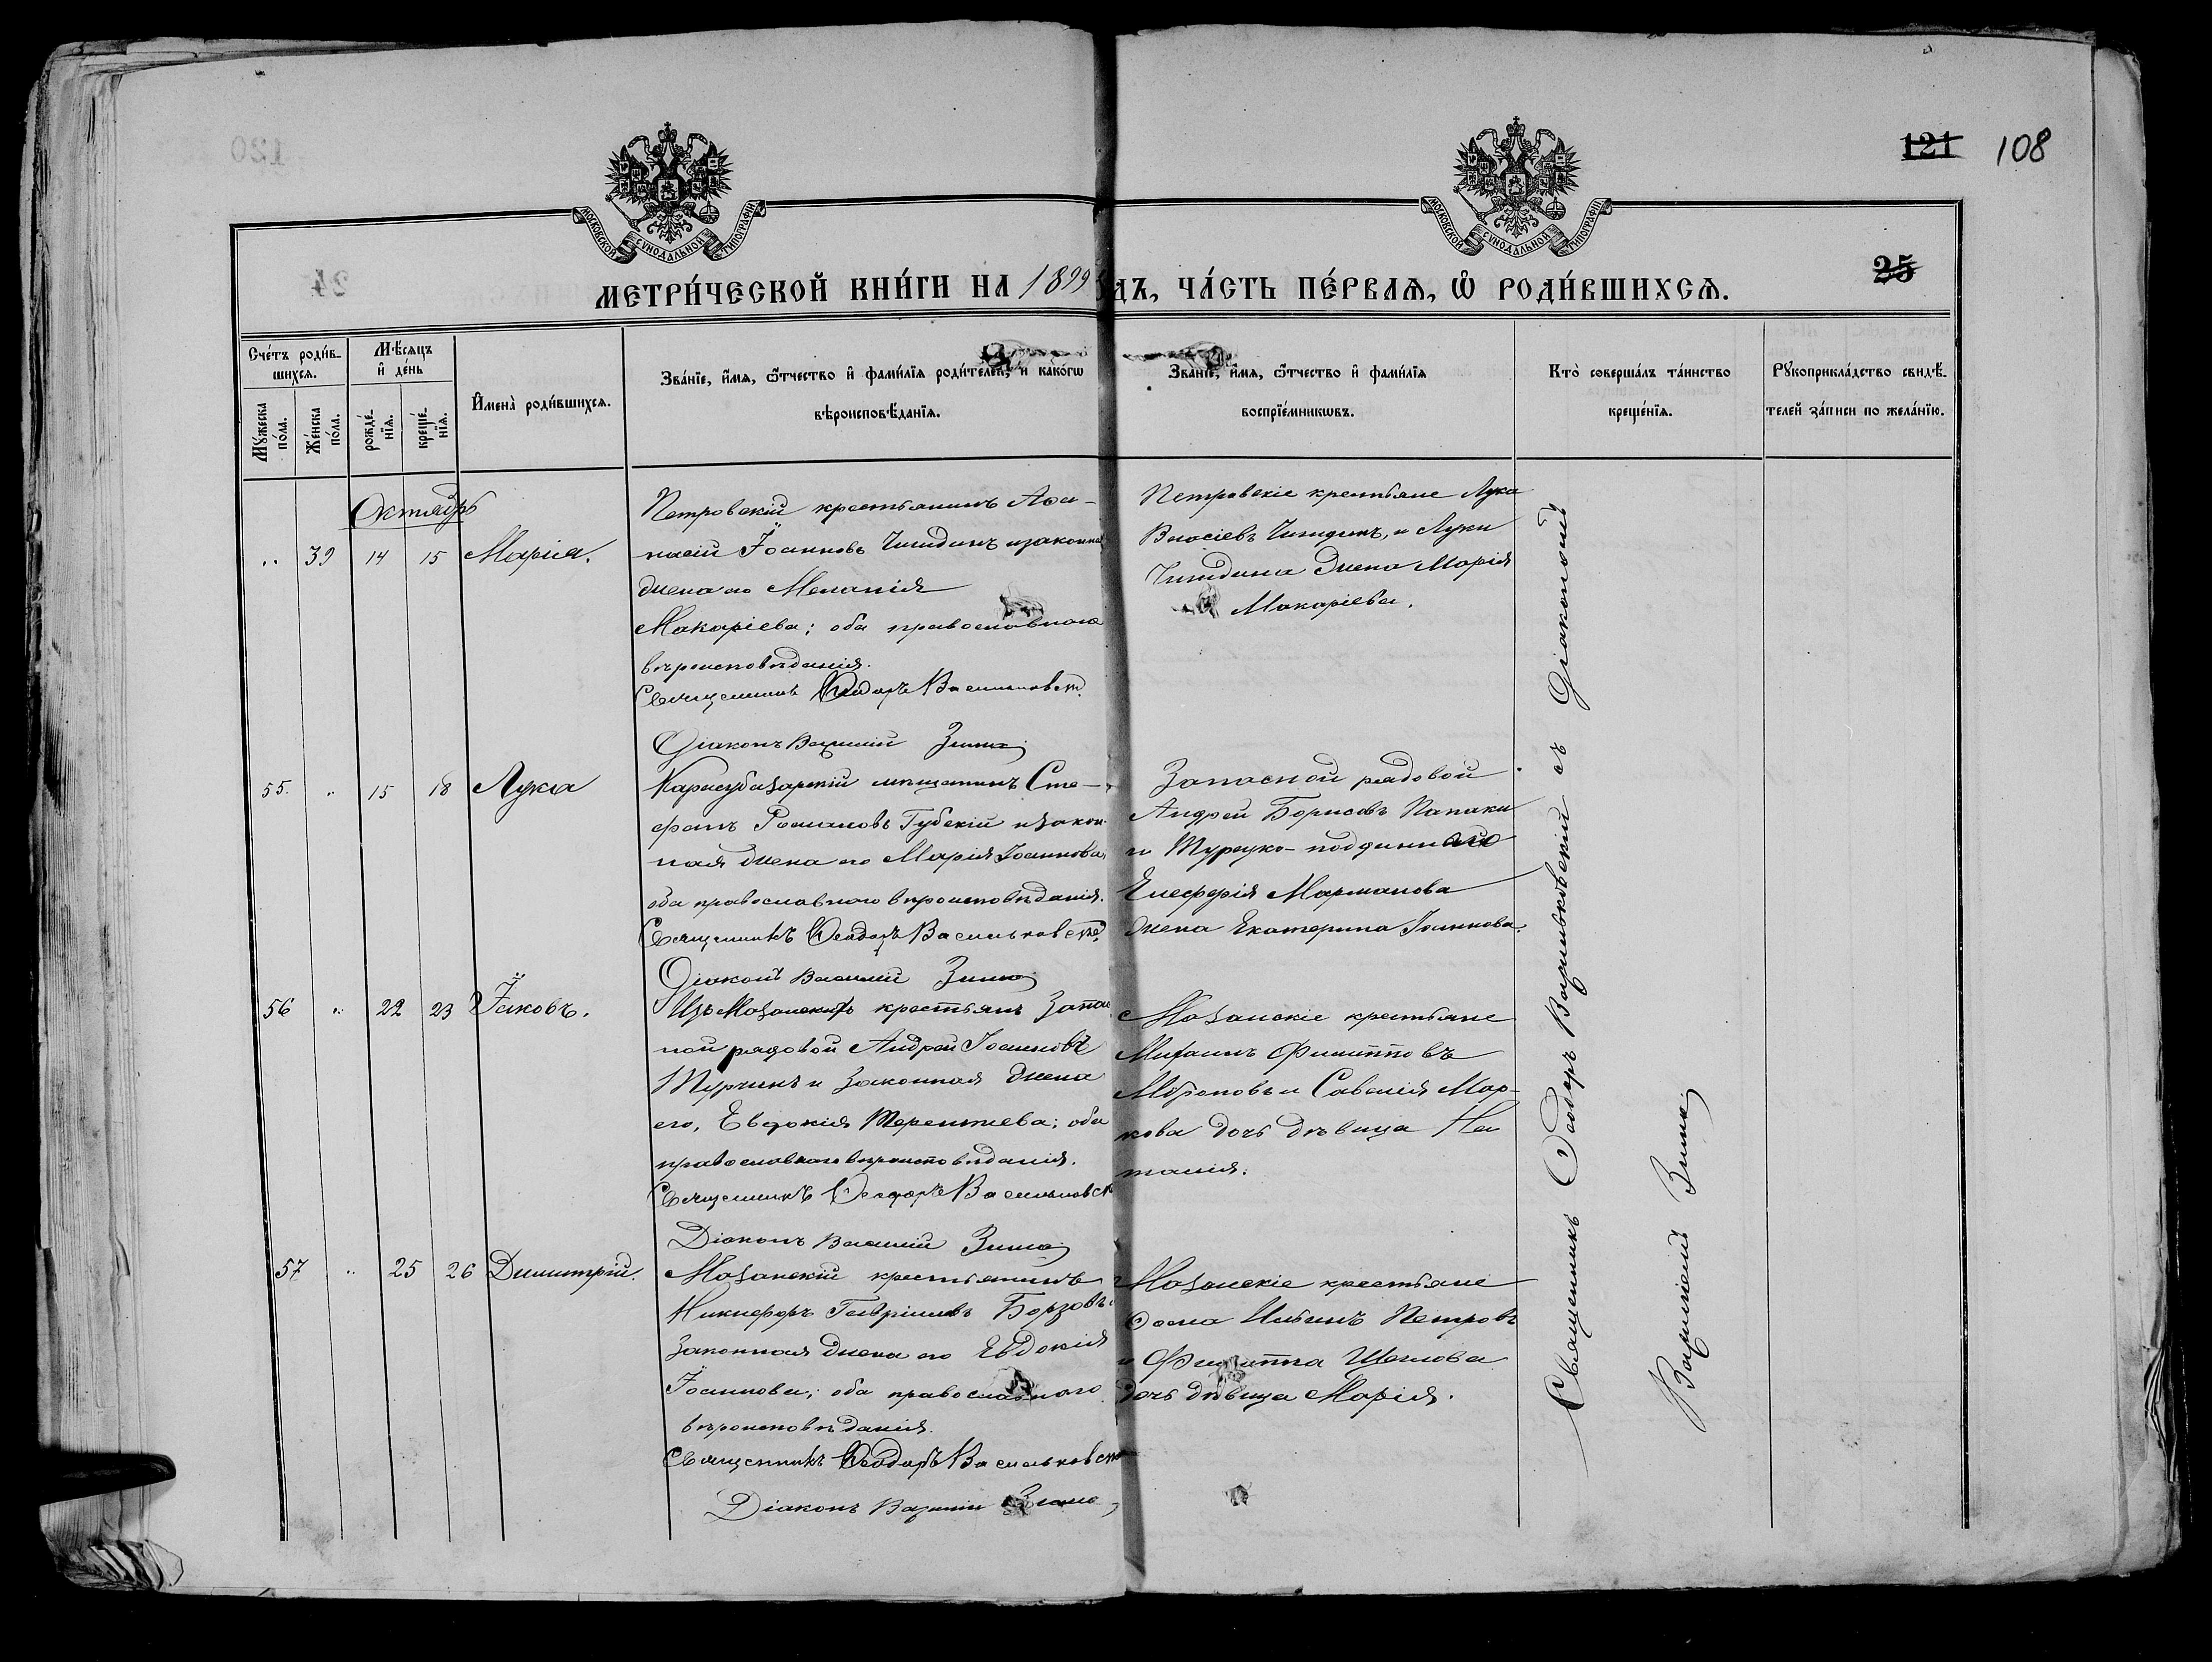 121 108
МОСКОВСКОЙ СѴНОДАЛЬНОЙ ТИПОГРАФІИ
МОСКОВСКОЙ СѴНОДАЛЬНОЙ ТИПОГРАФІИ
25
МЕТРИ́ЧЕСКОЙ КНИ́ГИ НА 1899 ДЪ, ЧА́СТЬ ПЕ́РВАѦ, Ѡ РОДИ́ВШИХСѦ.
Сче́тъ роди́в-
шихсѧ.
Му́жеска
по́ла.
Же́нска
по́ла.
Мѣ́сѧцъ
и҆ де́нь
рожде́-
нїѧ.
креще́-
нїѧ.
И҆мена̀ роди́вшихсѧ.
Зва́нїе, и҆́мѧ, ѻ҆́тчество и҆ фами́лїѧ роди́телей, и҆ како́гѡ
вѣроисповѣ́данїѧ.
Зва́нїе, и҆́мѧ, ѻ҆́тчество и҆ фами́лїѧ
воспрїе́мникѡвъ.
Кто̀ соверша́лъ та́инство
креще́нїѧ.
Рꙋкоприкла́дство свидѣ́-
телей за́писи по жела́нїю.
Октябрь
" 39 14 15 Марія.
Петровскій крестьянинъ Аѳа-
насій Іоанновъ Чигидинъ и законная
жена его Меланія
Макаріева; оба православнаго
вѣроисповѣданія.
Священникъ Ѳеодоръ Васильковск.
Діаконъ Василій Зима
Петровскіе крестьяне Лука
Власіевъ Чигидинъ, и Луки
Чигидина жена Марія
Макаріева.
55. " 15 18 Лука
Карасубазарскій мѣщанинъ Сте-
фанъ Романовъ Губскій и закон-
ная жена его Марія Іоаннова,
оба православнаго вѣроисповѣданія.
Священникъ Ѳеодоръ Васильковскі
Діаконъ Василій Зима
Запасной рядовой
Андрей Борисовъ Папаки
и Турецко-подданнаго
Елефферія Марманова
жена Екатерина Іоаннова.
56 " 22 23 Іаковъ.
Изъ Мазанскихъ крестьянъ Запас
ной рядовой Андрей Іоанновъ
Турчинъ и законная жена
его, Евдокія Терентіева; оба
православнаго вѣроисповѣданія.
Священникъ Ѳеодоръ Васильковск
Діаконъ Василій Зима
Мазанскіе крестьяне
Михаилъ Филипповъ
и Савелія Мар-
кова дочь дѣвица На
талія.
57 " 25 26 Димитрій.
Мазанскій крестьянинъ
Никифоръ Гавріиловъ Борзовъ и
законная жена его Евдокія
Іоаннова; оба православнаго
вѣроисповѣданія.
Священникъ Ѳеодоръ Васильковск
Діаконъ Василій Зима
Мазанскіе крестьяне
Ѳома Петровъ
и Филиппа Щеглова
дочь дѣвица Марія.
Священникъ Ѳеодоръ Васильковскій съ Діакономъ
Василіемъ Зима